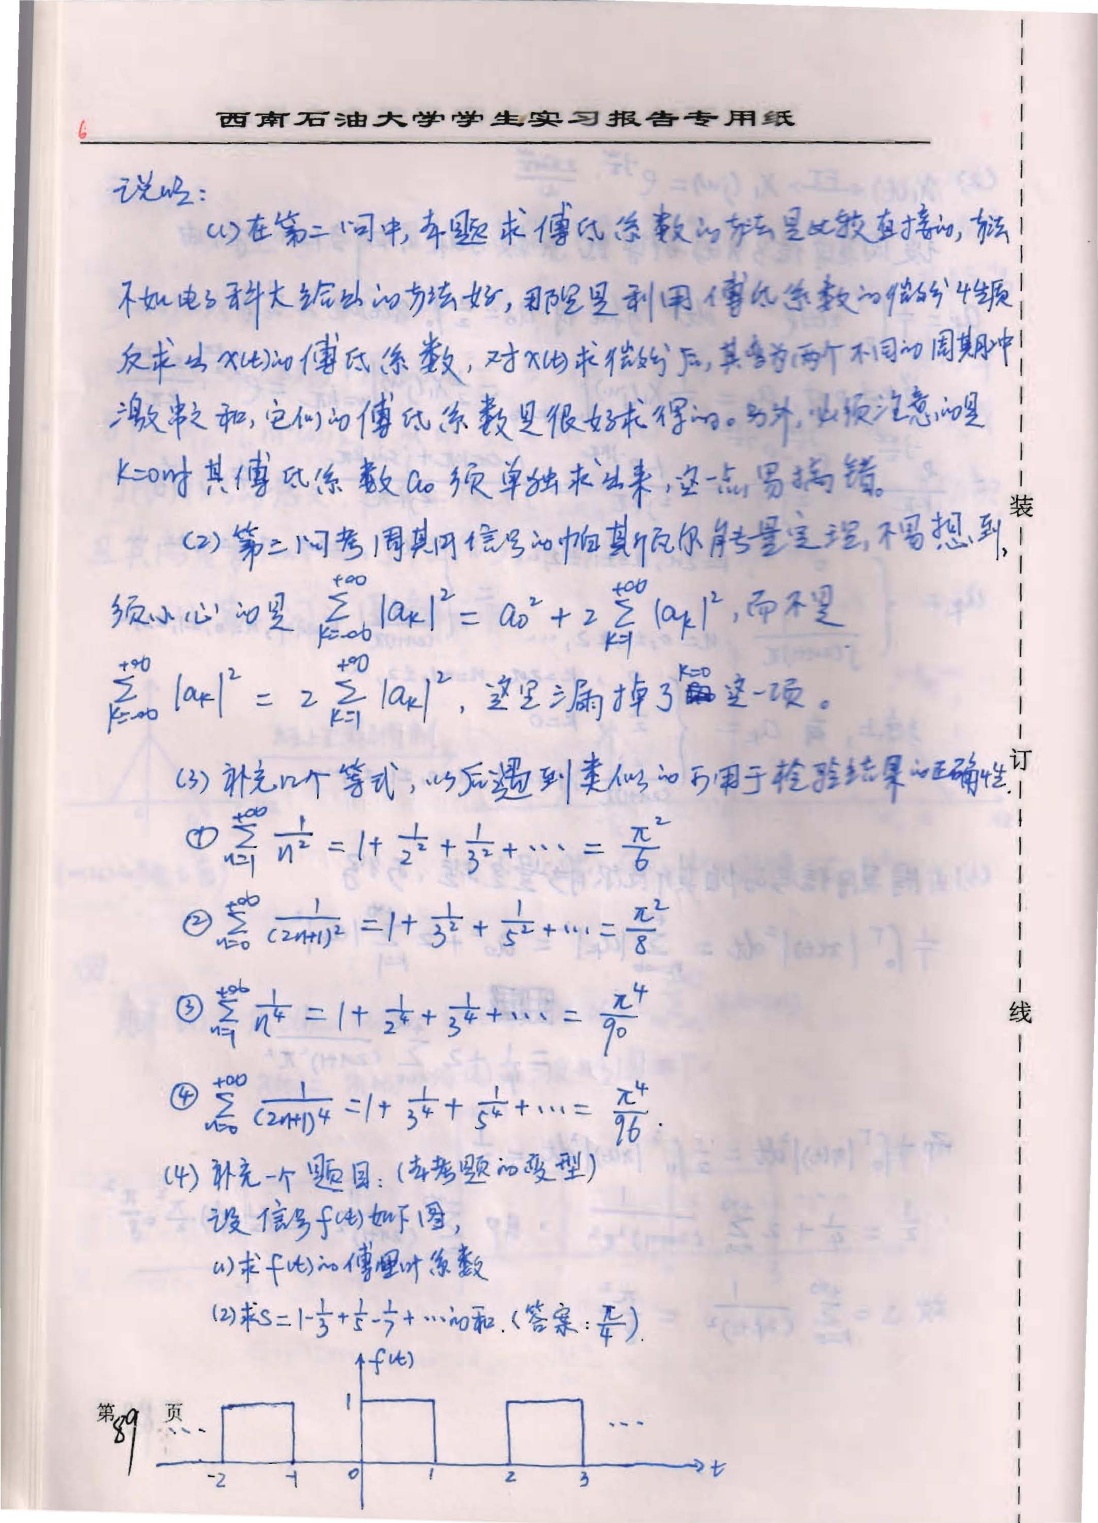 西南石油大学学生实习报告专用纸
6
说明:
(1)在第二问中,本题求傅氏系数的方法是比较直接的,方法
不如电子科大给出的方法好,那里是利用傅氏系数的微分性质
反求出x(t)的傅氏系数,对x(t)求微分后,其变为两个不同的周期冲
激串之和,它们的傅氏系数是很好求得的。另外,必须注意的是
K=0时其傅氏系数a₀须单独求出来,这一点易搞错。
(2)第三问考周期信号的帕斯瓦尔能量定理,不易想到,
须小心的是 $\sum_{k=-\infty}^{+\infty}|a_k|^2 = a_0^2 + 2\sum_{k=1}^{+\infty}|a_k|^2$,而不是
$\sum_{k=-\infty}^{+\infty}|a_k|^2 = 2\sum_{k=1}^{+\infty}|a_k|^2$,这里漏掉了k=0这一项。
(3)补充几个等式,以后遇到类似的可用于检验结果的正确性.
① $\sum_{n=1}^{+\infty}\frac{1}{n^2} = 1+\frac{1}{2^2}+\frac{1}{3^2}+\cdots = \frac{\pi^2}{6}$
② $\sum_{n=0}^{+\infty}\frac{1}{(2n+1)^2} = 1+\frac{1}{3^2}+\frac{1}{5^2}+\cdots = \frac{\pi^2}{8}$
③ $\sum_{n=1}^{+\infty}\frac{1}{n^4} = 1+\frac{1}{2^4}+\frac{1}{3^4}+\cdots = \frac{\pi^4}{90}$
④ $\sum_{n=0}^{+\infty}\frac{1}{(2n+1)^4} = 1+\frac{1}{3^4}+\frac{1}{5^4}+\cdots = \frac{\pi^4}{96}$.
(4)补充一个题目:(本考题的变型)
设信号f(t)如下图,
(1)求f(t)的傅里叶系数
(2)求S=1-$\frac{1}{3}$+$\frac{1}{5}$-$\frac{1}{7}$+…的和.(答案:$\frac{\pi}{4}$).
f(t)
1
… …
-2 -1 0 1 2 3 t
第89页
装
订
线